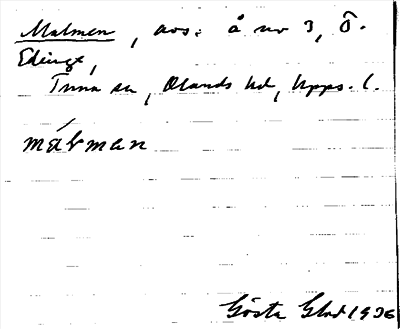 Malmen, avs. å nr 3, Ö.
Edinge,
Tuna sn, Olands hd, Upps. l.
málman
Gösta 1936